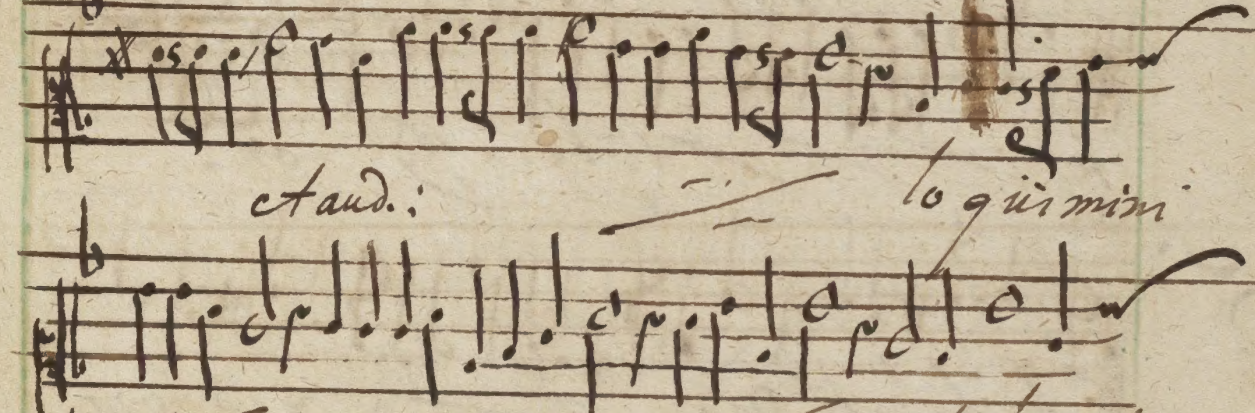 et aud.:
loquimini